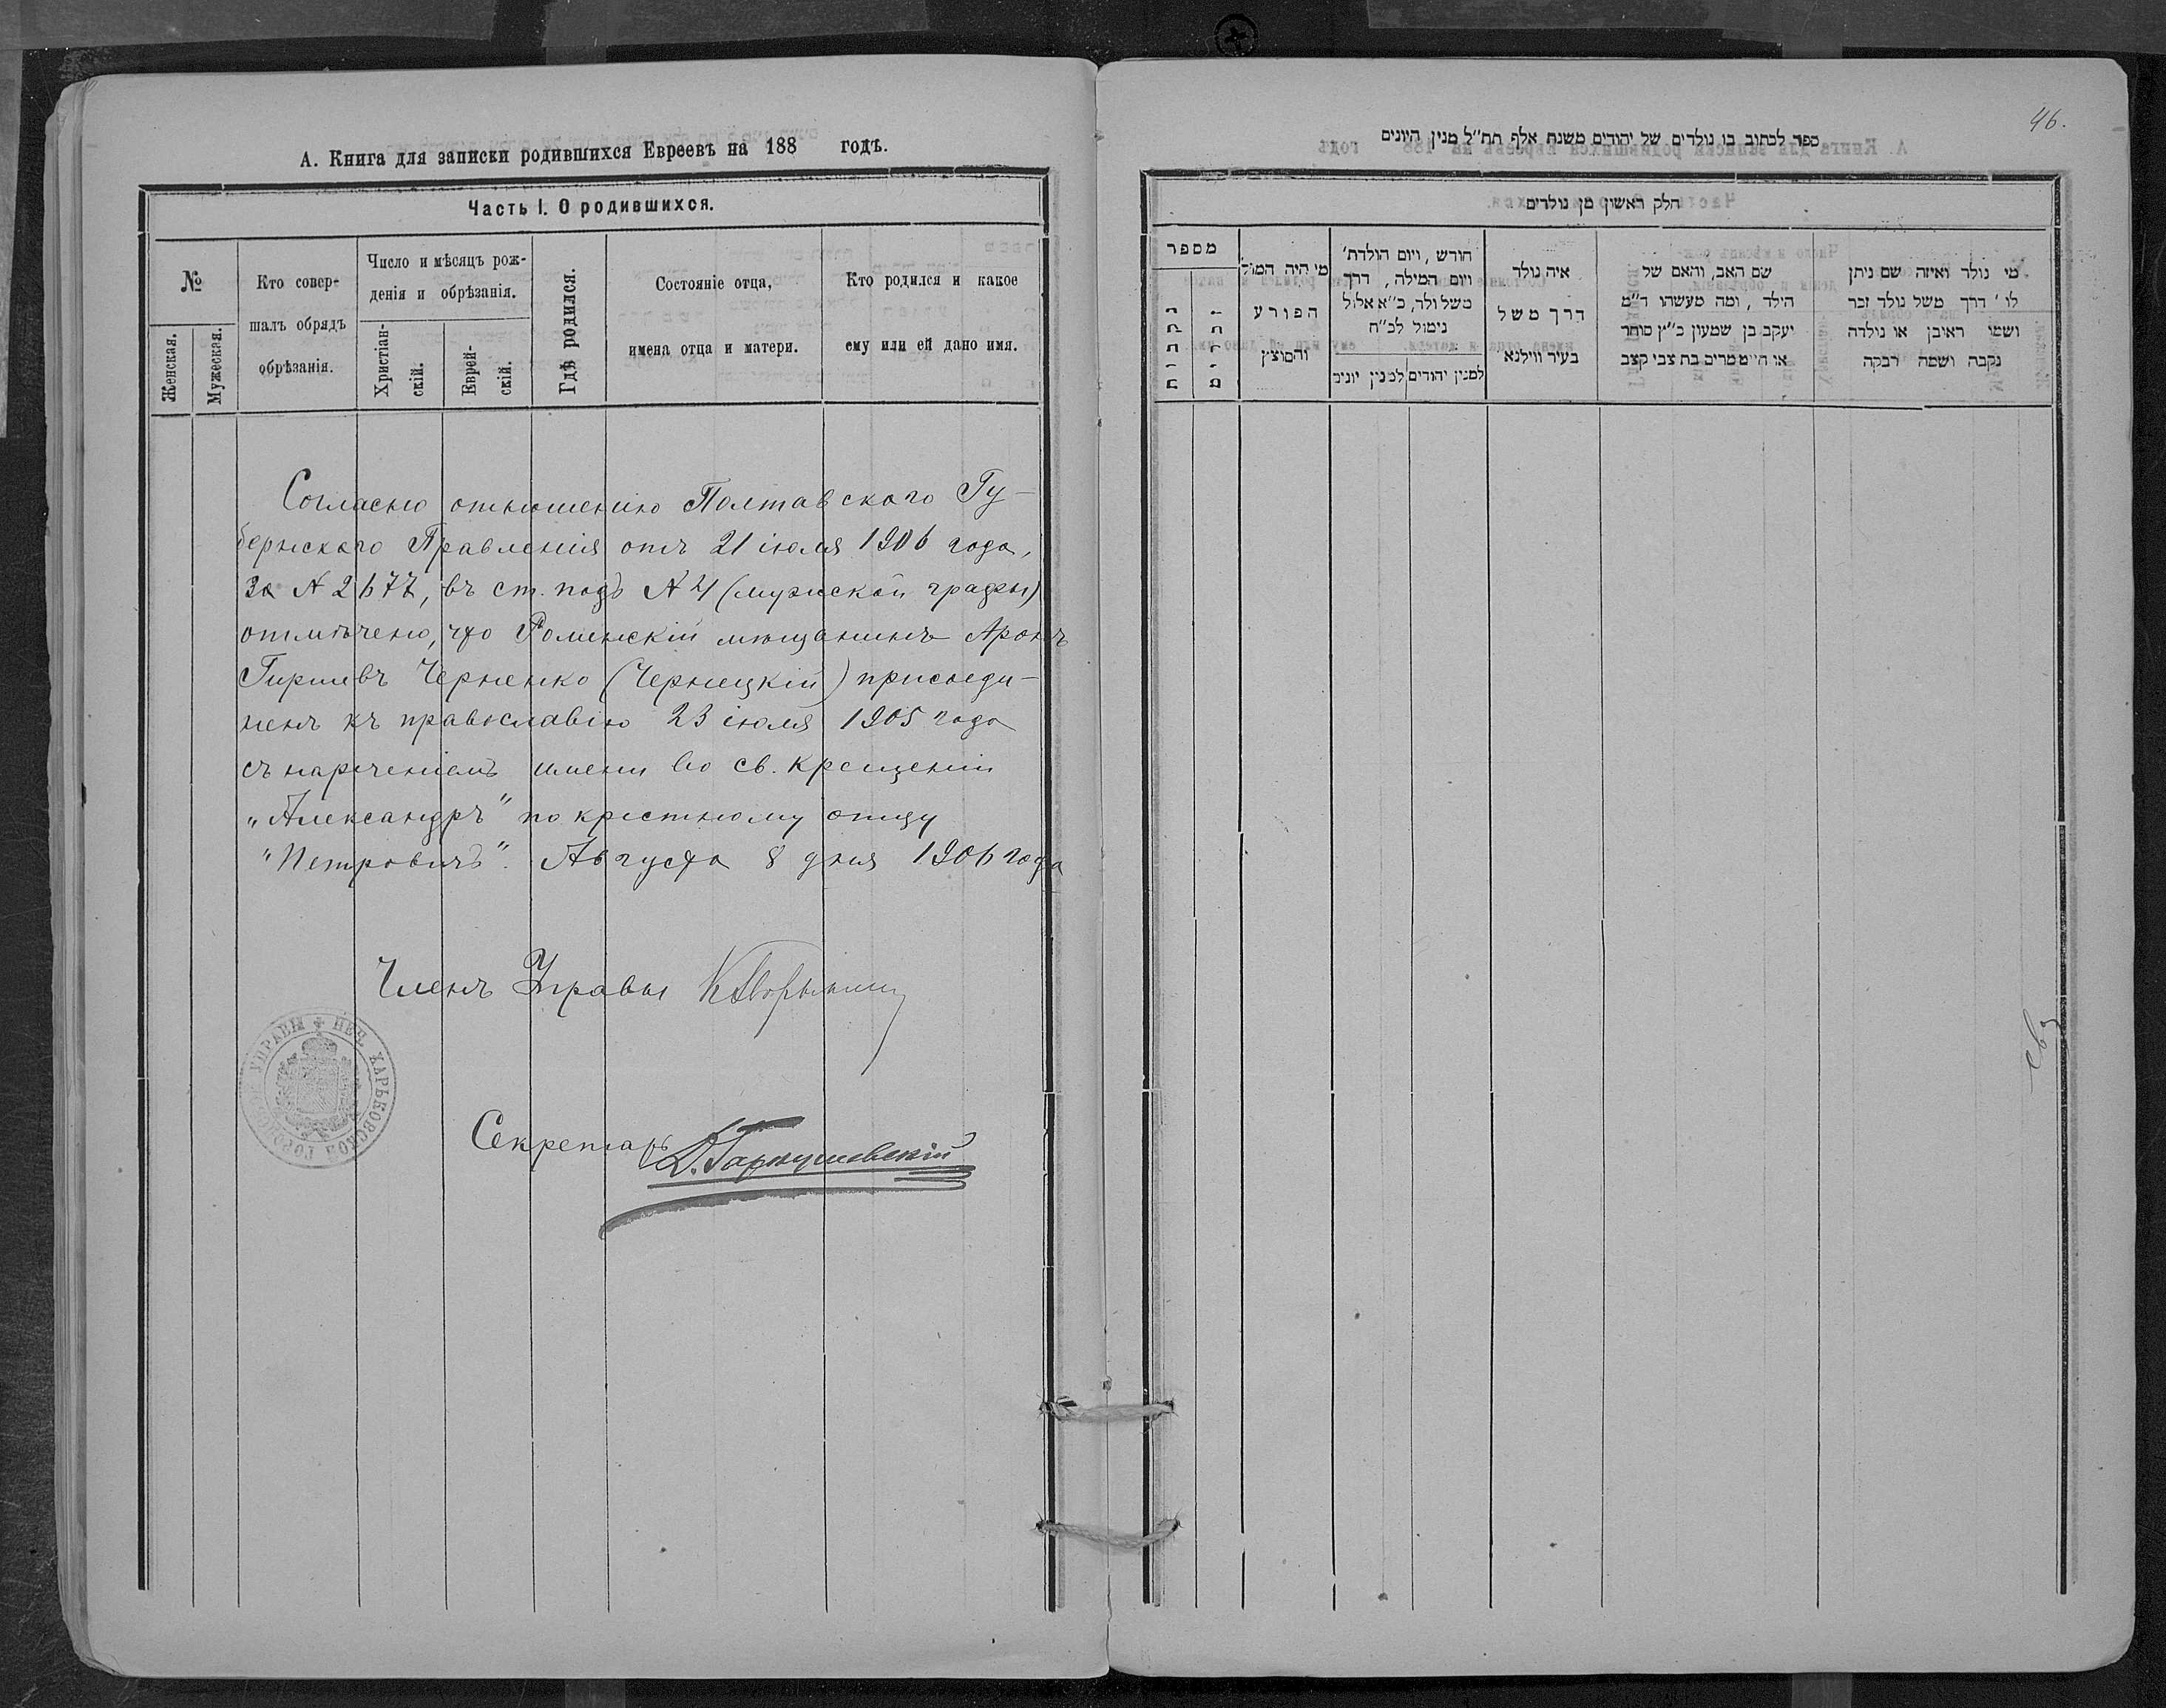 А. Книга для записки родившихся Евреевъ на 188 годъ.
Часть I. О родившихся.
№
Женская.
Мужеская.
Кто совер-
шалъ обрядъ
обрѣзанія.
Число и мѣсяцъ рож-
денія и обрѣзанія.
Христіан-
скій.
Еврей-
скій.
Гдѣ родился.
Состояніе отца,
имена отца и матери.
Кто родился и какое
ему или ей дано имя.
Согласно отношенію Полтавскаго Гу-
бернскаго Правленія отъ 21 іюля 1906 года,
за N 2677, въ ст. подъ N 4 (мужской графы)
отмѣчено, что Роменскій мѣщанинъ Аронъ
Гиршевъ Черненко (Чернецкій) присоеди-
ненъ къ православію 23 іюля 1905 года
съ нареченіемъ имени во св. крещеніи
„Александръ" по крестному отцу
"Петровичъ". Августа 8 дня 1906 года
Членъ Управы
Секретарь
ПЕЧ. ХАРЬКОВСКОЙ ГОРОДСКОЙ УПРАВЫ
46.
ספר לכתוב בו נולדים של יהודים משנת אלף תת״ל מנין היונים
חלק ראשון מן נולדים
מספר
נקבות
זכרים
מי היה המוהל
הפורע
והמוצץ
חורש, ויום הולדת׳
ויום המילה, דרך
משל ולד, כ״א אלול
נימול לכ״ח
למנין יהודים
למנין יונים
איה נולד
דרך משל
בעיר ווילנא
שם האב, והאם של
הילד, ומה מעשהו ד״מ
יעקב בן שמעון כ״ץ סוחר
או חיים מרים בת צבי קצב
מי נולד ואיזה שם ניתן
לו׳ דרך משל נולד זכר
ושמו ראובן או נולדה
נקבה ושמה רבקה